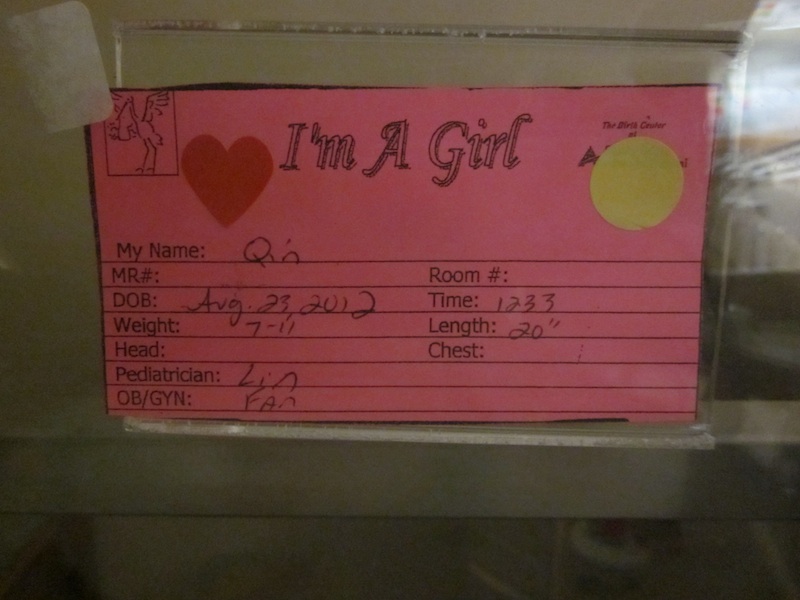 I'm A Girl
The Birth Center
at
My Name: Qin
MR#: Room #:
DOB: Aug. 23, 2012 Time: 1233
Weight: 7-11 Length: 20"
Head: Chest:
Pediatrician: Lin
OB/GYN: Fan